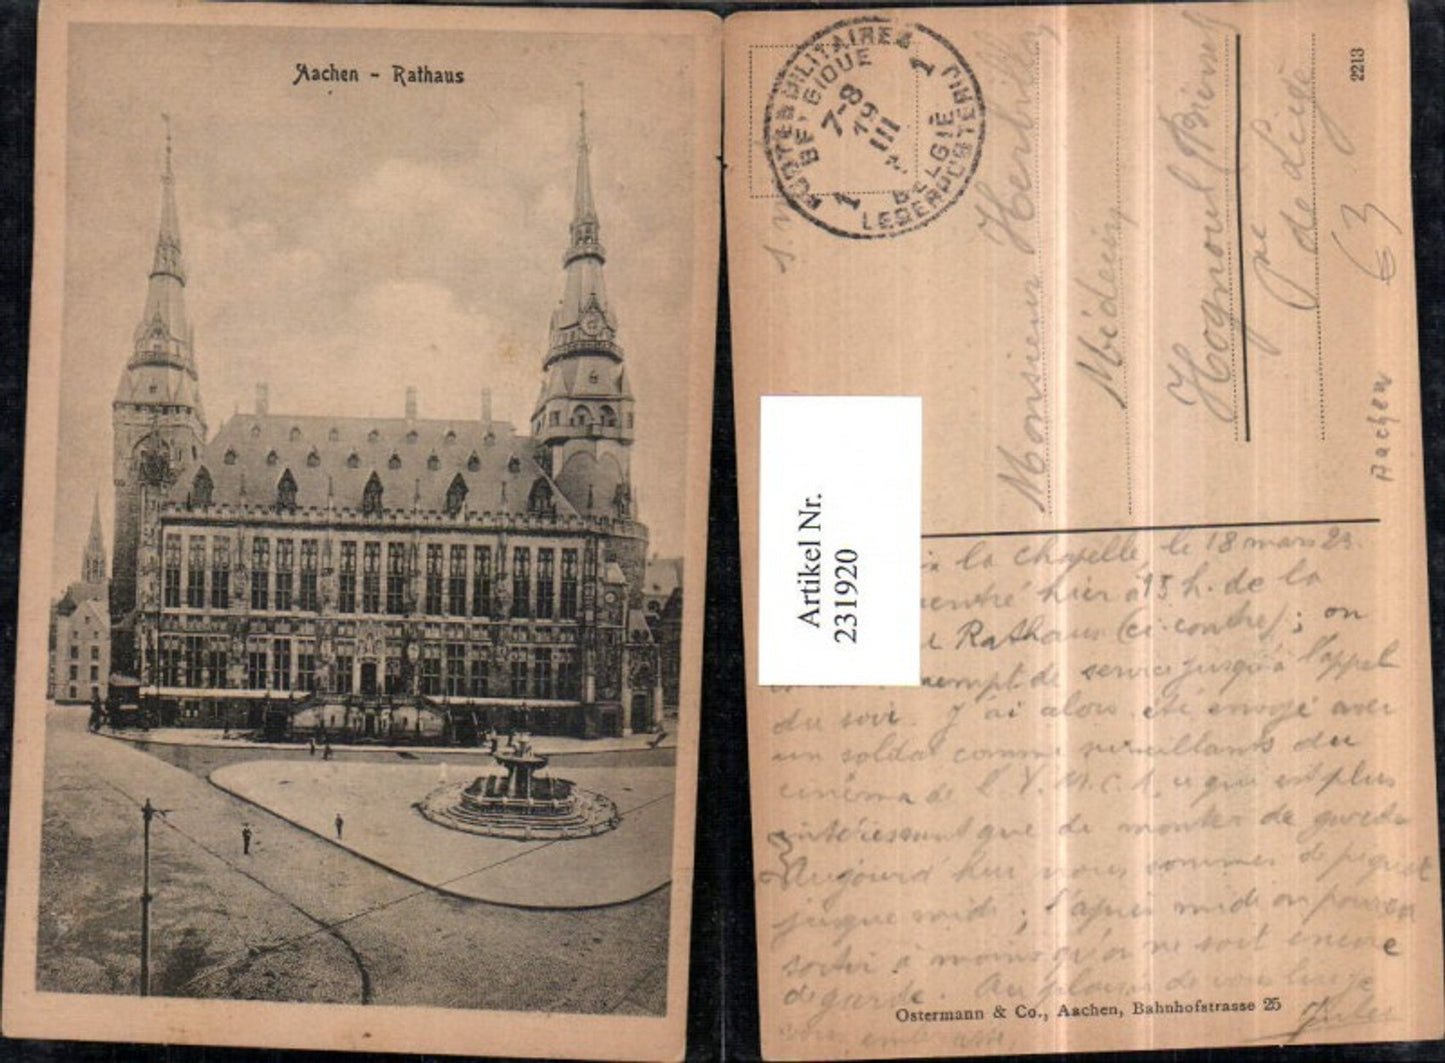 Aachen - Rathaus
POSTES MILITAIRES
BELGIQUE
1
7-8
19
III
BELGIË
LEGERPOSTERIJ
1
S. M
Monsieur Herbillon
Médecin
Hognoul
Pce de Liége
2213
63
Aachen
Artikel Nr.
231920
la chapelle, le 18 mars 23.
rentré hier à 15 h. de la
Rathaus (ci-contre); on
exempt de service jusqu'à l'appel
du soir. J'ai alors été envoyé avec
un soldat comme surveillants du
cinéma de l'Y.M.C.A, ce qui est plus
intéressant que de monter de garde
Aujourd'hui nous sommes de piquet
jusque midi; l'après midi on pourra
sortir à moins qu'on ne soit encore
de garde. Au plaisir de vous lire je
vous embrasse,
Jules
Ostermann & Co., Aachen, Bahnhofstrasse 25